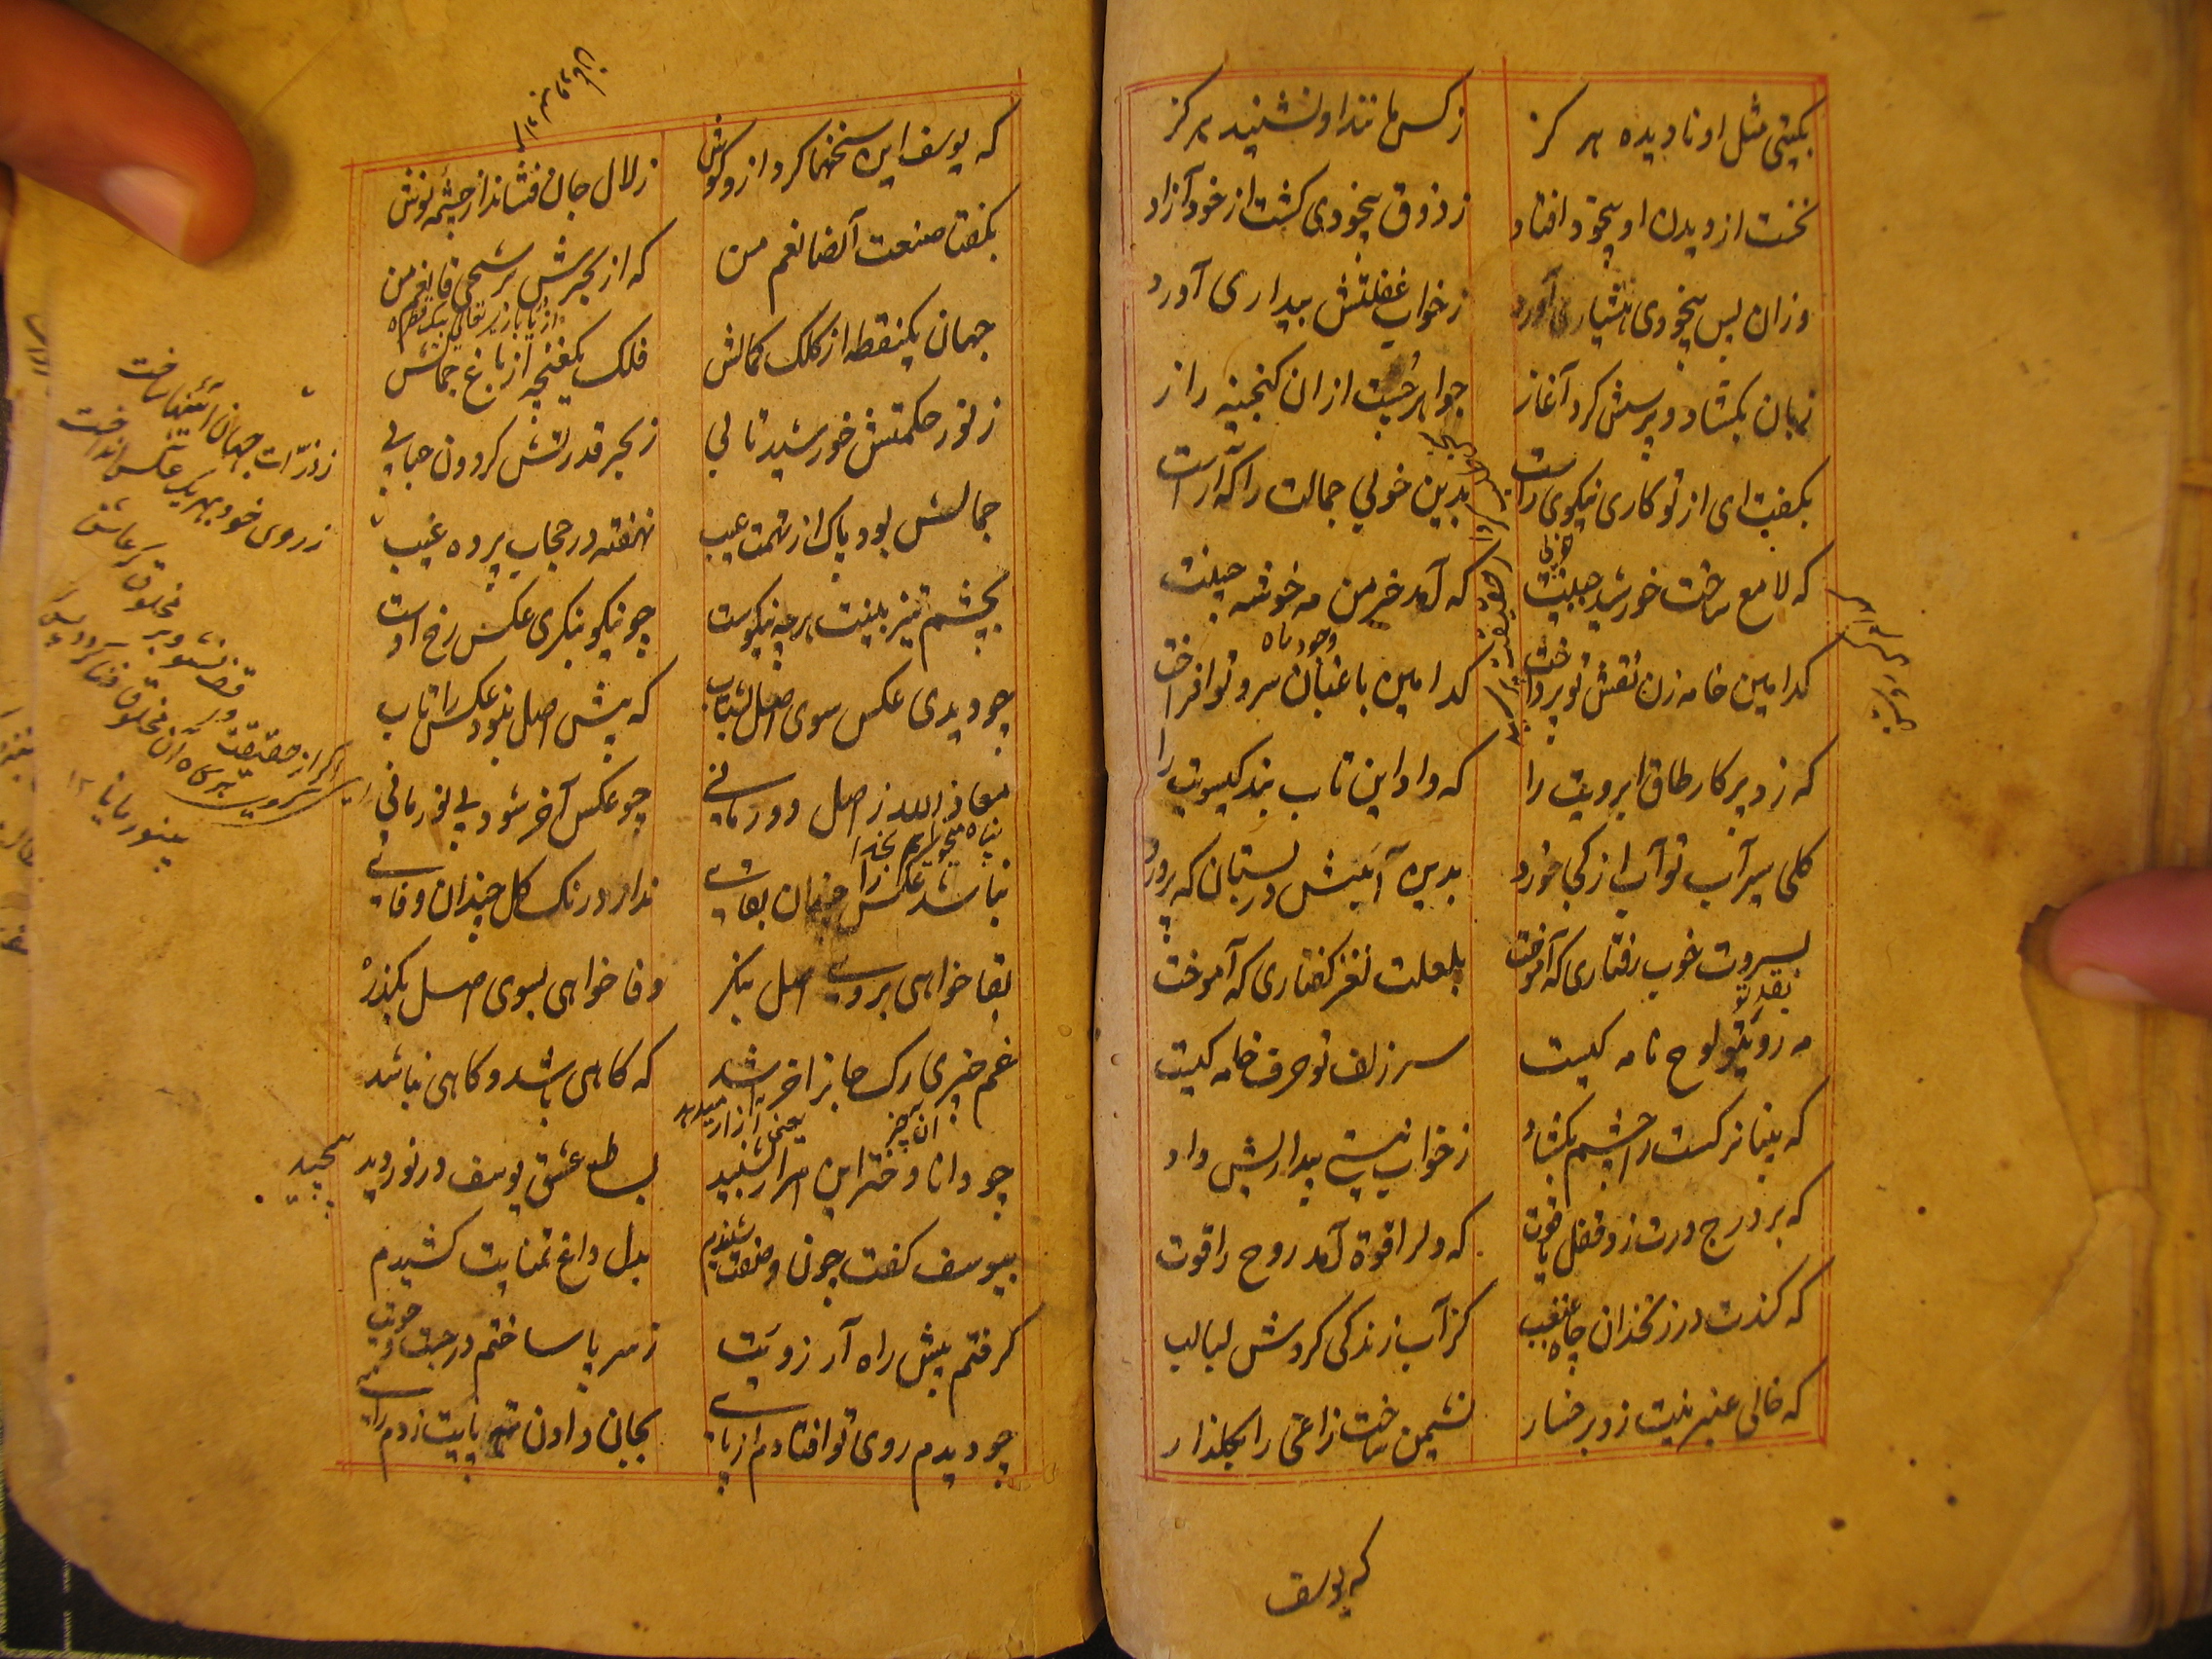 بکیتی مثل او نادیده هر کز
ز کس مانند او نشنید هر کز
نخست از دیدن او بیخود افتاد
ز ذوق بیخودی کشت از خود آزاد
وزان پس بیخودی هشیاری آورد
ز خواب غفلتش بیداری آورد
زبان بکشاد و پرسش کرد آغاز
جواهر جست ازان کنجینه راز
بکفت ای از تو کاری نیکوی راست
بدین خوبی جمالت را که آراست
که لامع ساخت خورشید جبینت
که آمد خرمن مه خوشه چینت
کدامین خامه زن نقش تو پرداخت
کدامین باغبان سرو تو افراخت
که زد پرکار طاق ابرویت را
که داد این تاب بند کیسویت را
کلی سیرآب تو آب از کجا خورد
بدین آیینش در بستان که پرورد
بسروت خوب رفتاری که آموخت
بلعلت نغز کفتاری که آموخت
مه رویتو لوح نامه کیست
سر زلف تو حرف خامه کیست
که بینا نرکست را چشم بکشاد
ز خواب نیستی بیداریش داد
که بر درج درت زد قفل یاقوت
که دلرا قوة آمد روح را قوت
که کندت در زنخدان چاه غبغب
کز آب زندکی کردش لبالب
که خالی عنبرینت زد بر خسار
نشیمن ساخت زاغی را بکلذار
که یوسف
که یوسف این سخنها کرد ازو کوش
زلال جان فشاند از چشمه نوش
بکفتا صنعت آنصانعم من
که از بحرش برشحی قانعم من
جهان یکنقطه از کلک کمالش
فلک یکغنچه از باغ جمالش
ز نور حکمتش خورشید تابی
ز بحر قدرتش کردون حبابی
جمالش بود پاک از تهمت عیب
نهفته در حجاب پرده غیب
ز ذرّات جهان آئینها ساخت
ز روی خود بهریک عکس انداخت
بچشم تیز بینت هرچه نیکوست
چو نیکو بنکری عکس رخ اوست
چو دیدی عکس سوی اصل بشتاب
که پیش اصل نبود عکس را تاب
معاذ الله ز اصل ار دور مانی
چو عکس آخر شود بی نور مانی
پناه میخواهم بخدا
نباشد عکس را چندان بقائے
ندارد رنک کل چندان وفائے
بقا خواهی بروے اصل بنکر
وفا خواهی بسوی اصل بکذر
غم چیزی رک جانرا خراشد
که کاهی باشد و کاهی نباشد
چو دانا دختر این اسرار بشنید
بساط عشق یوسف در نوردید
پیچید
بیوسف کفت چون وصفت شنیدم
بدل داغ تمنایت کشیدم
کرفتم پیش راه آرزویت
ز سر پا ساختم در جست و جویت
چو دیدم روی تو افتادم از پائے
بجانی دادن پایت زدم رائے